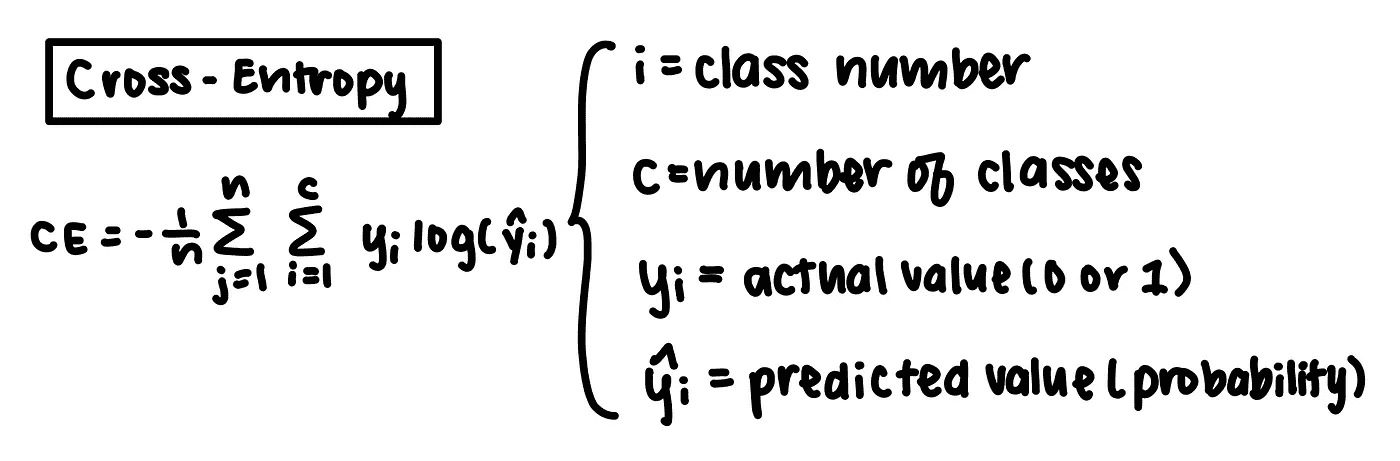 Cross-Entropy
CE = -1/n ∑_{j=1}^{n} ∑_{i=1}^{c} y_i log(ŷ_i)
i = class number
c = number of classes
y_i = actual value (0 or 1)
ŷ_i = predicted value (probability)